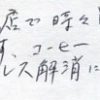 店で時々
す。コーヒー
レス解消に